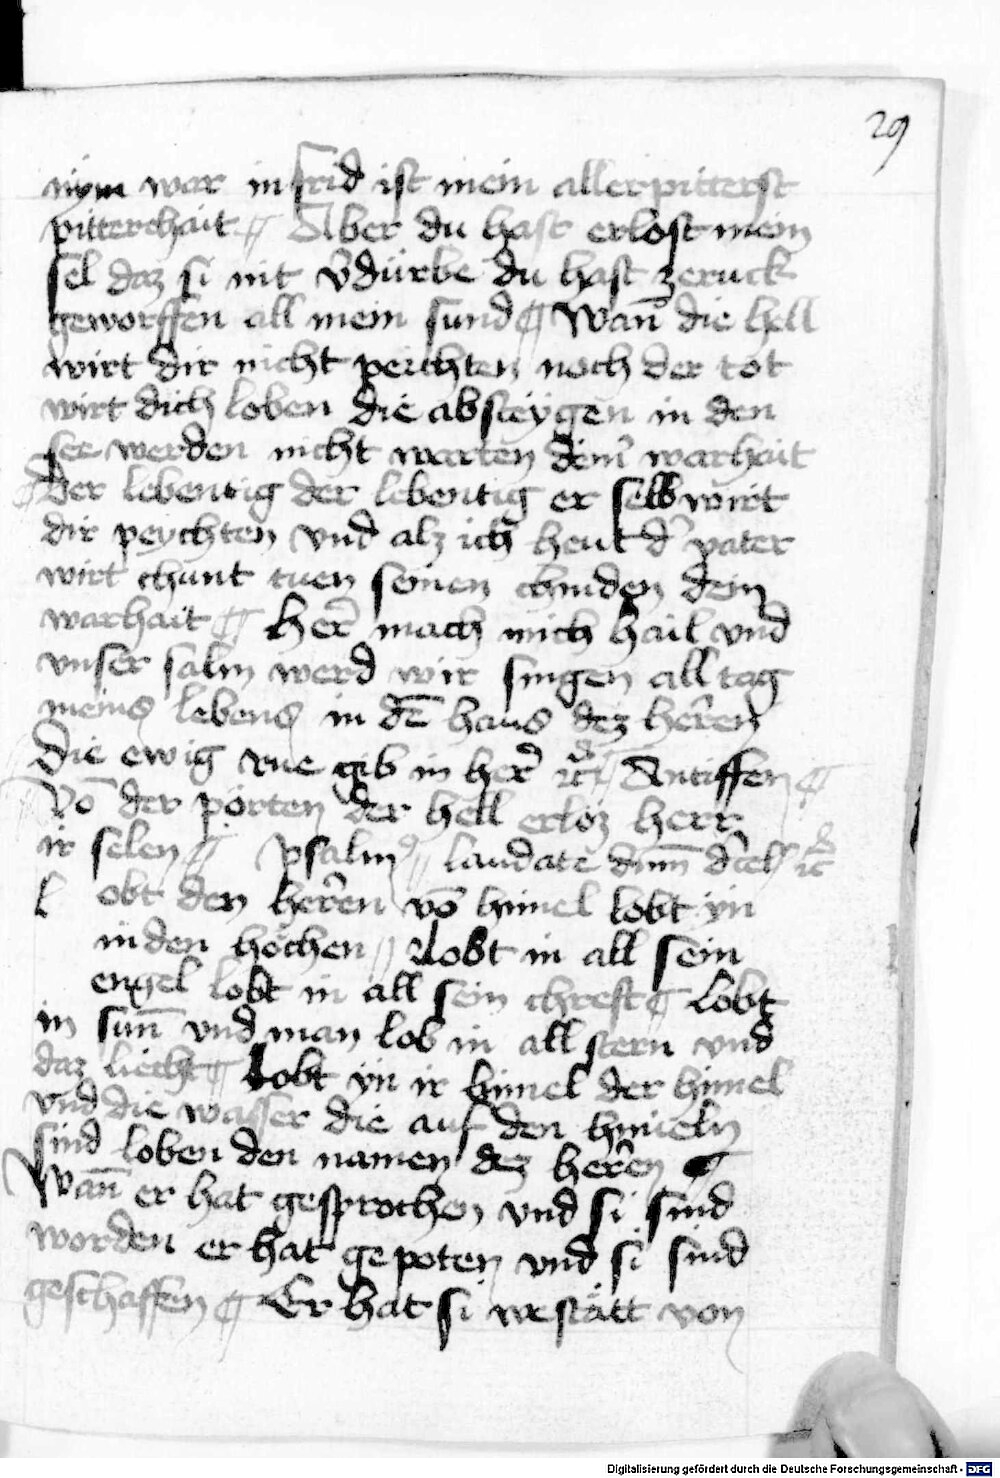 29
nym war in frid ist mein allerpitterst
pitterchait ¶ Aber du hast erlost mein
sel daz si nit v̄dürbe du hast zeruck
geworffen all mein sund ¶ Wan̄ die hell
wirt dir nicht peichten noch der tot
wirt dich loben die absteygen in den
see werden nicht warten dein̄ warhait
¶ Der lebentig der lebentig er selb wirt
dir peychten vnd alz ich heut d̄ vater
wirt chunt tuen seinen chinden dein
warhait ¶ Her̄ mach mich hail vnd
vnser salm werd wir singen all tag
meins lebens in dē haus dez her̄en
Die ewig rue gib in her̄ Antiffen ¶
Vō der porten der hell erloz herr
ir selen ¶ psalm⁹ laudate dn̄m d̄ cel̄
l obt den her̄en vō himel lobt yn
in den höchen Lobt in all sein
engel lobt in all sein chreft ¶ Lobt
in sun̄ vnd man lob in all stern vnd
daz liecht ¶ Lobt yn ir himel der himel
vnd die wasser die auf den himeln
sind loben den namen dez her̄en ¶
Wan̄ er hat gesprochen vnd si sind
worden er hat gepoten vnd si sind
geschaffen ¶ Er hat si westätt von
Digitalisierung gefördert durch die Deutsche Forschungsgemeinschaft - DFG